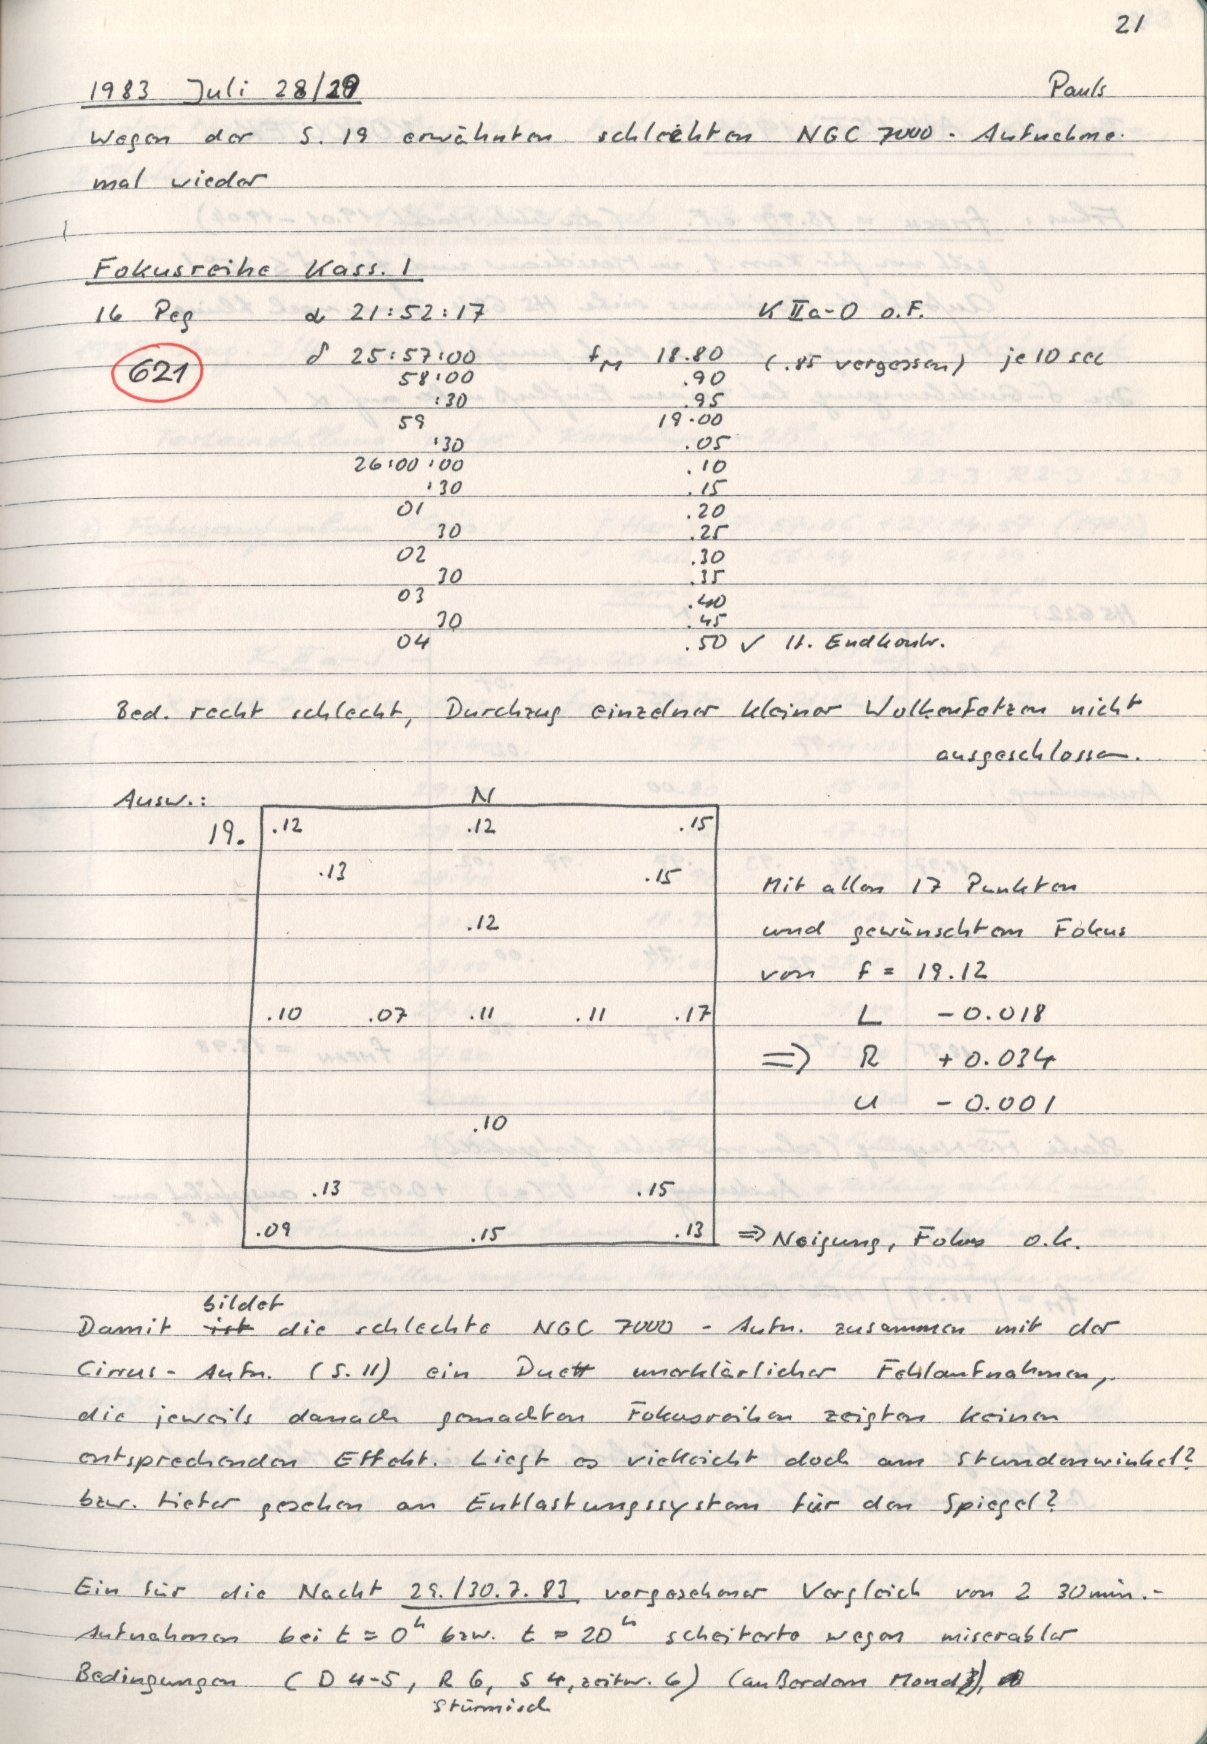 21
1983 Juli 28/29 Pauls
Wegen der S. 19 erwähnten schlechten NGC 7000 - Aufnahme
mal wieder
Fokusreihe Kass. 1
16 Peg α 21:52:17 K IIa-O o.F.
621 δ 25:57:00 fM 18.80 (.85 vergessen) je 10 sec
58:00 .90
:30 .95
59 19.00
:30 .05
26:00:00 .10
:30 .15
01 .20
30 .25
02 .30
30 .35
03 .40
30 .45
04 .50 ✓ lt. Endkontr.
Bed. recht schlecht, Durchzug einzelner kleiner Wolkenfetzen nicht
ausgeschlossen.
Ausw.: N
19. .12 .12 .15
.13 .15
Mit allen 17 Punkten
.12 und gewünschtem Fokus
von f = 19.12
.10 .07 .11 .11 .17 L -0.018
⇒ R +0.034
U -0.001
.10
.13 .15
.09 .15 .13 ⇒ Neigung, Fokus o.k.
bildet
Damit ist die schlechte NGC 7000 - Aufn. zusammen mit der
Cirrus - Aufn. (S. 11) ein Duett unerklärlicher Fehlaufnahmen,
die jeweils danach gemachten Fokusreihen zeigten keinen
entsprechenden Effekt. Liegt es vielleicht doch am Stundenwinkel?
bzw. tiefer gesehen am Entlastungssystem für den Spiegel?
Ein für die Nacht 29./30.7.83 vorgesehener Vergleich von 2 30min.-
Aufnahmen bei t = 0h bzw. t = 20h scheiterte wegen miserabler
Bedingungen (D 4-5, R 6, S 4, zeitw. 6) (außerdem Mond),
stürmisch